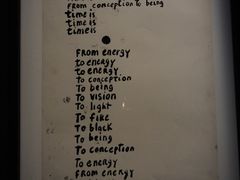 From conception to being
time is
time is
time is
From energy
to energy
to energy
To conception
To being
To vision
To light
To fire
To black
To being
To conception
To energy
From energy